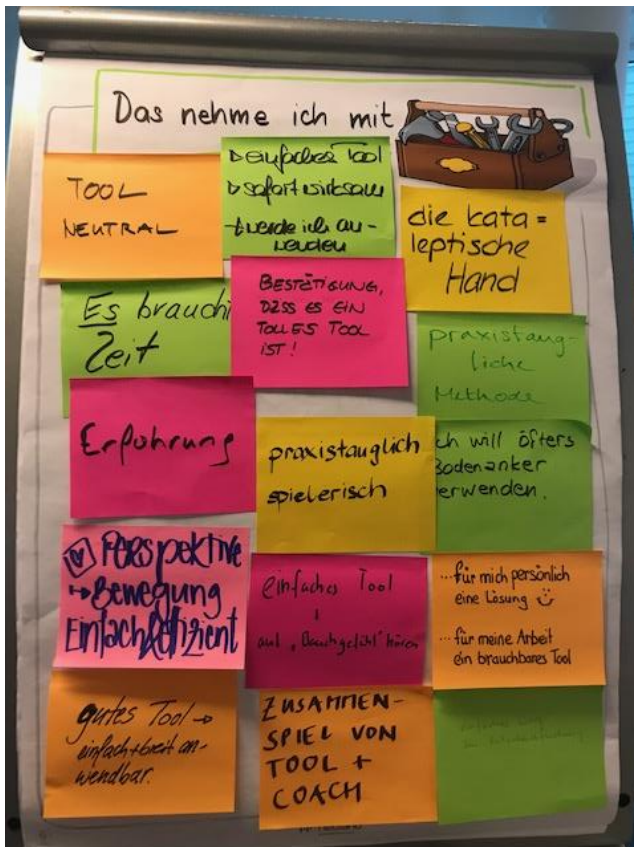 Das nehme ich mit
TOOL
NEUTRAL
▷ einfaches Tool
▷ sofort wirksam
→ werde ich an-
wenden
die kata=
leptische
Hand
Es braucht
Zeit
BESTÄTIGUNG,
DASS ES EIN
TOLLES TOOL
IST!
praxistaug-
liche
Methode
Erfahrung
praxistauglich
spielerisch
ch will öfters
Bodenanker
verwenden.
Perspektive
→ Bewegung
Einfach & effizient
einfaches Tool
+
auf "Bauchgefühl" hören
...für mich persönlich
eine Lösung
...für meine Arbeit
ein brauchbares Tool
gutes Tool →
einfach + breit an-
wendbar.
ZUSAMMEN-
SPIEL VON
TOOL +
COACH